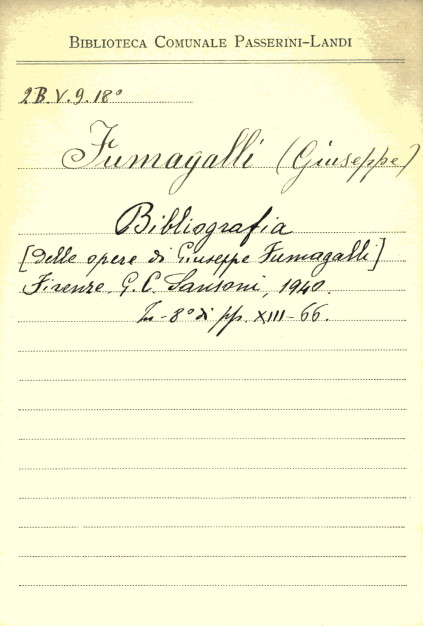 BIBLIOTECA COMUNALE PASSERINI-LANDI
2B.V.9.18°
Fumagalli (Giuseppe)
Bibliografia
[delle opere di Giuseppe Fumagalli]
Firenze G. C. Sansoni, 1940.
In-8° di pp. XIII-66.